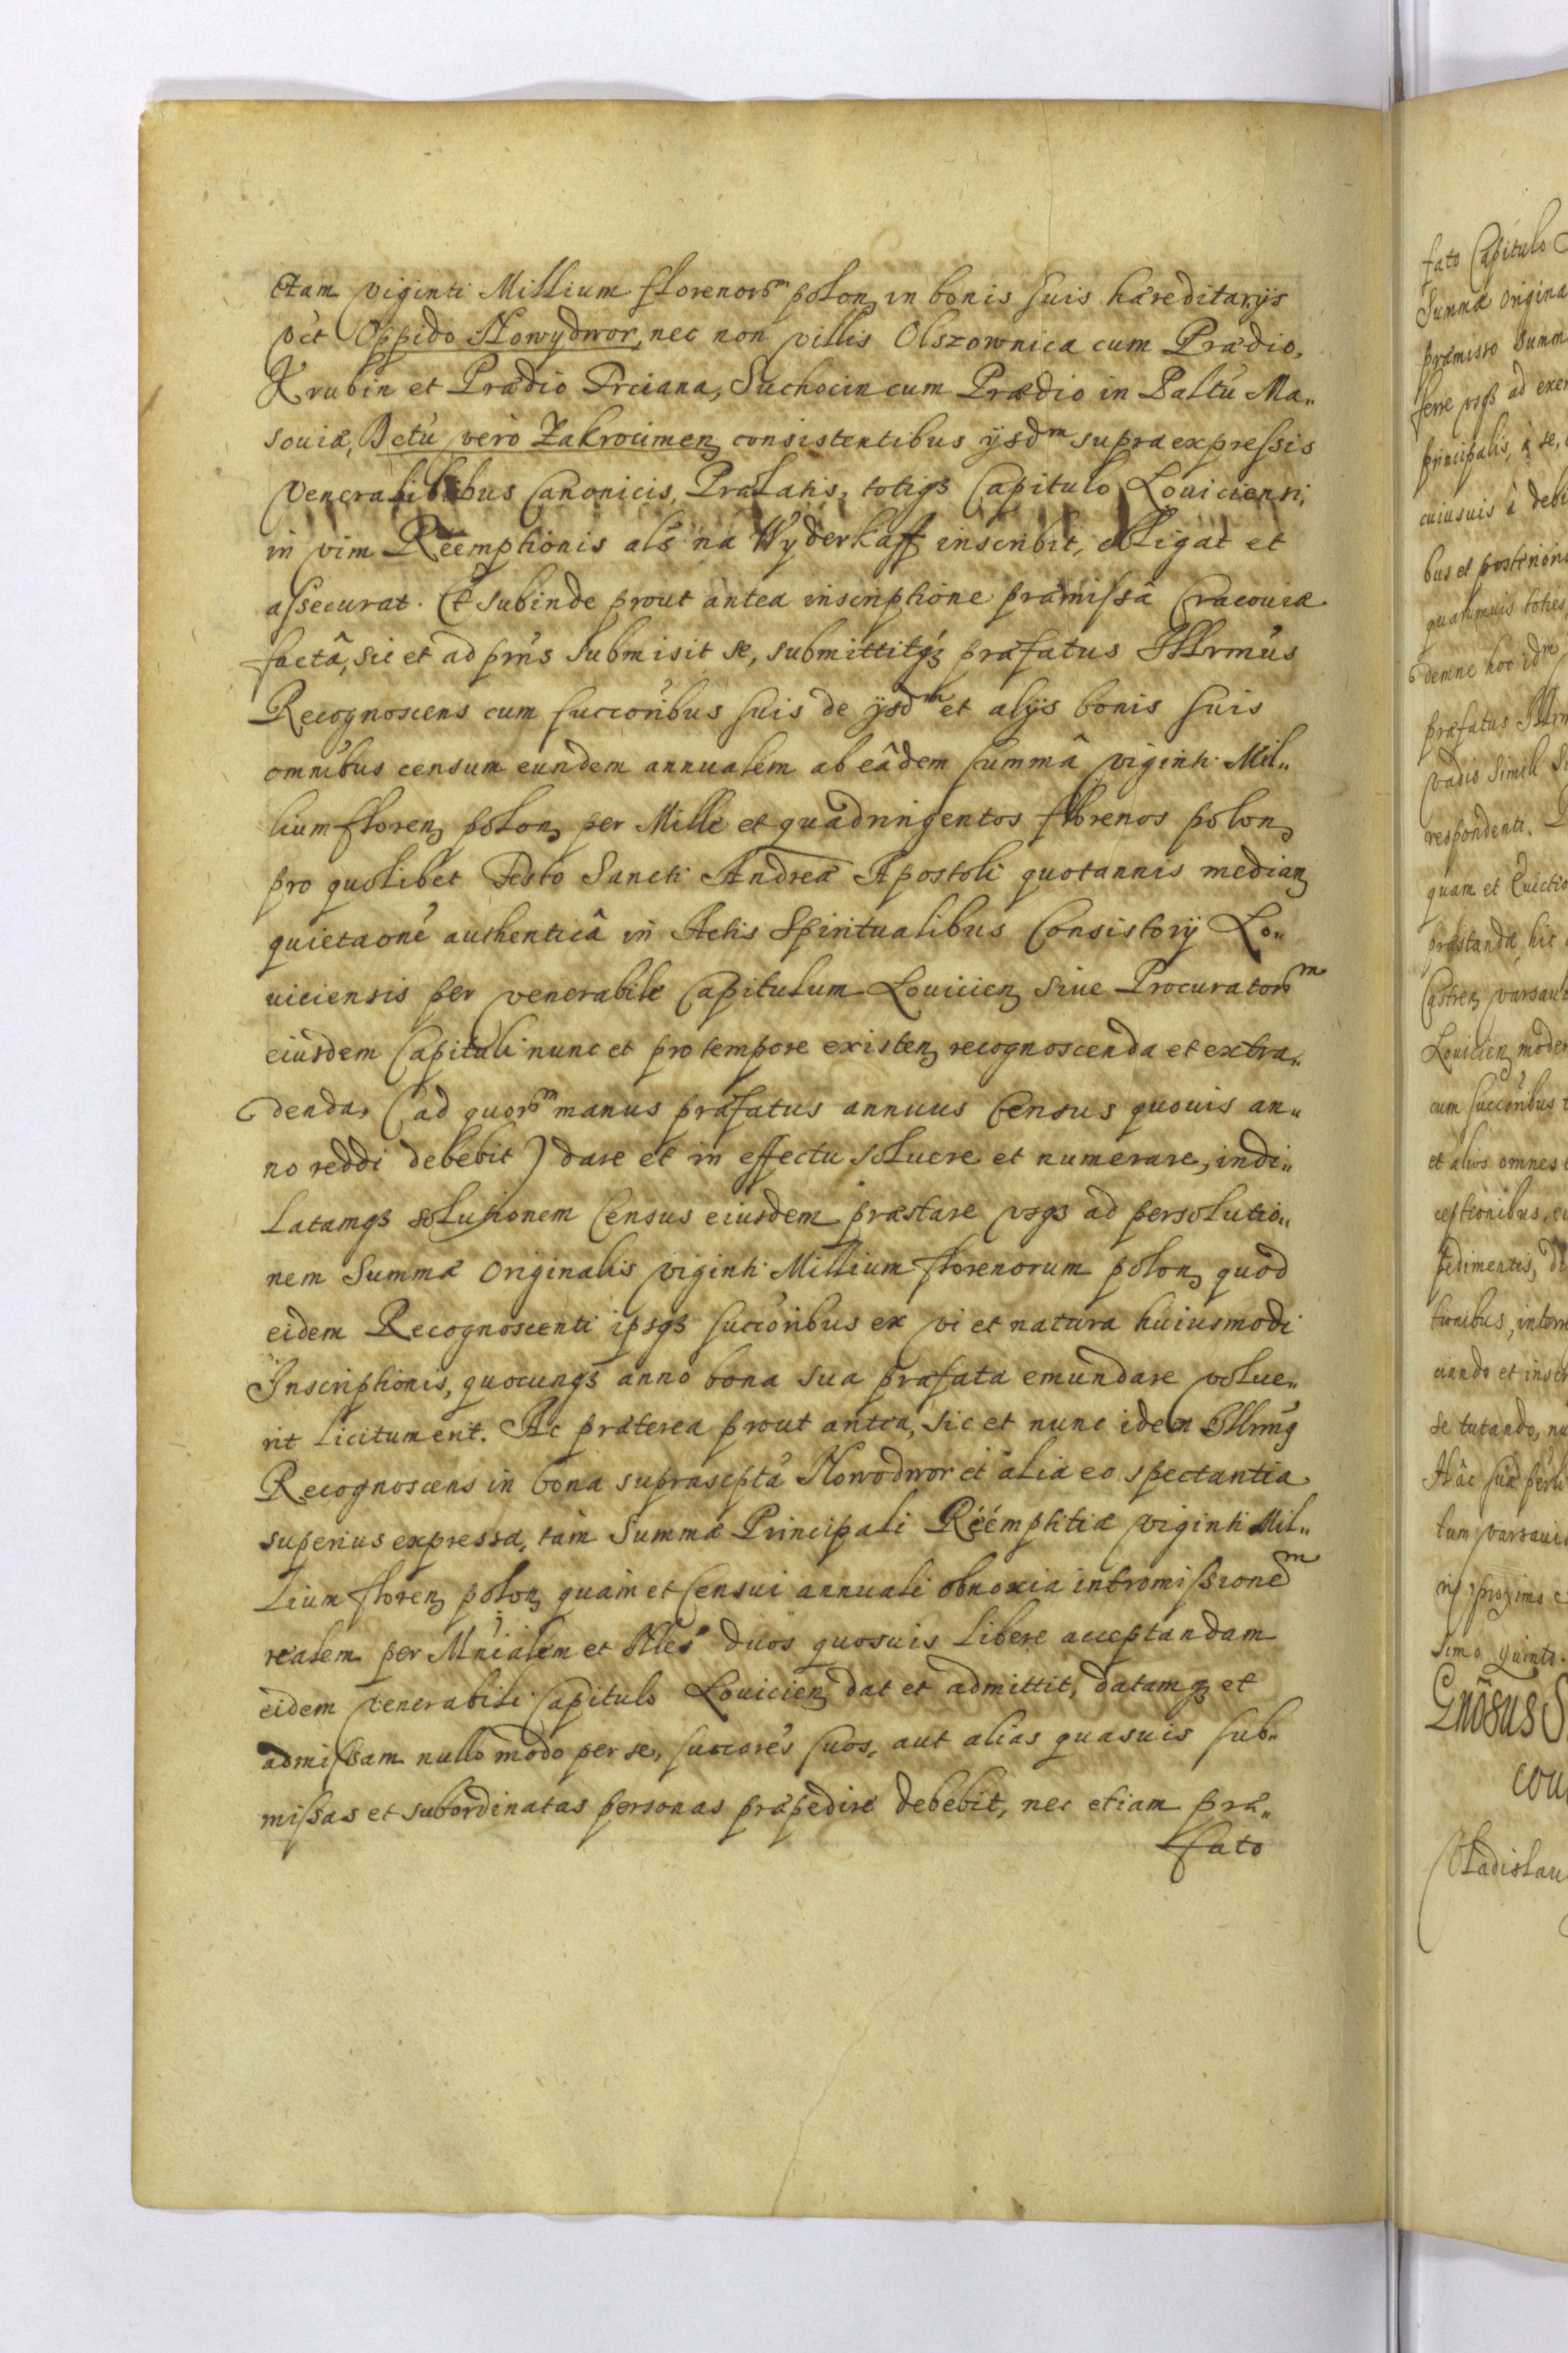 ctam viginti Millium florenor^m polon in bonis suis hæreditarijs
vt Oppido Nowydwor, nec non villis Olszownica cum Prædio,
Krubin et Prædio Trciana, Suchocin cum Prædio in Paltu Ma„
souiæ, Dctu vero Zakrocimen consistentibus ijsd^m supra expressis
Venerabilibus Canonicis, Prælatis, totiq3 Capitulo Louiciensi,
in vim Reemptionis als na Wyderkaff inscribit, obligat et
assecurat. Et subinde prout antea inscriptione præmissâ Cracouiæ
factâ, sic et ad prñs submisit se, submittitq3 præfatus Illrmus
Recognoscens cum succoribus suis de ijsd^m et alijs bonis suis
omnibus censum eundem annualem ab eâdem summâ viginti Mil„
lium floren polon per Mille et quadringentos florenos polon
pro quolibet Festo Sancti Andreæ Apostoli quotannis median
quietaone authenticâ in Actis Spiritualibus Consistorij Lo„
uiciensis per venerabile Capitulum Louicien siue Procurator^m
eiusdem Capituli nunc et pro tempore existen recognoscenda et extra„
denda, (ad quor^m manus præfatus annuus Census quouis an„
no reddi debebit) dare et in effectu soluere et numerare, indi„
latamq3 solutionem Census eiusdem præstare vsq3 ad persolutio„
nem Summæ Originalis viginti Millium florenorum polon quod
eidem Recognoscenti ipsq3 succoribus ex vi et natura huiusmodi
Inscriptionis, quocunq3 anno bona sua præfata emundare volue„
rit licitum erit. Ac præterea prout antea, sic et nunc idem Illrmus
Recognoscens in bona suprascpta Nowodwor et alia eo spectantia
superius expressa, tam Summæ Principali Réémptitiæ viginti Mil„
lium floren polon quam et Censui annuali obnoxia intromissione^m
realem per Mnialem et Nles duos quosuis libere acceptandam
eidem venerabili Capitulo Louicien dat et admittit, datamq3 et
admissam nullo modo per se, succores suos, aut alias quasuis sub„
missas et subordinatas personas præpedire debebit, nec etiam præ„
fato
fato Capitulo
Summæ Origina
præmisso Summ
ferre vsq3 ad exer
principalis, à se,
cuiusuis à debi
bus et posterior
quarumuis toties
demne hoc id^m
præfatus Illrm
vadio simili S
respondenti.
quam et Euictio
præstanda, hic
Castren varsau
Louicien moder
cum succoribus
et alios omnes
ceptionibus, e
pedimentis, d
tionibus, interr
ciando et inscr
se tutando, nu
Hâc suâ perli
tum varsauie
nij proximo
simo quinto.
Gnosus S
cou
Vladislau